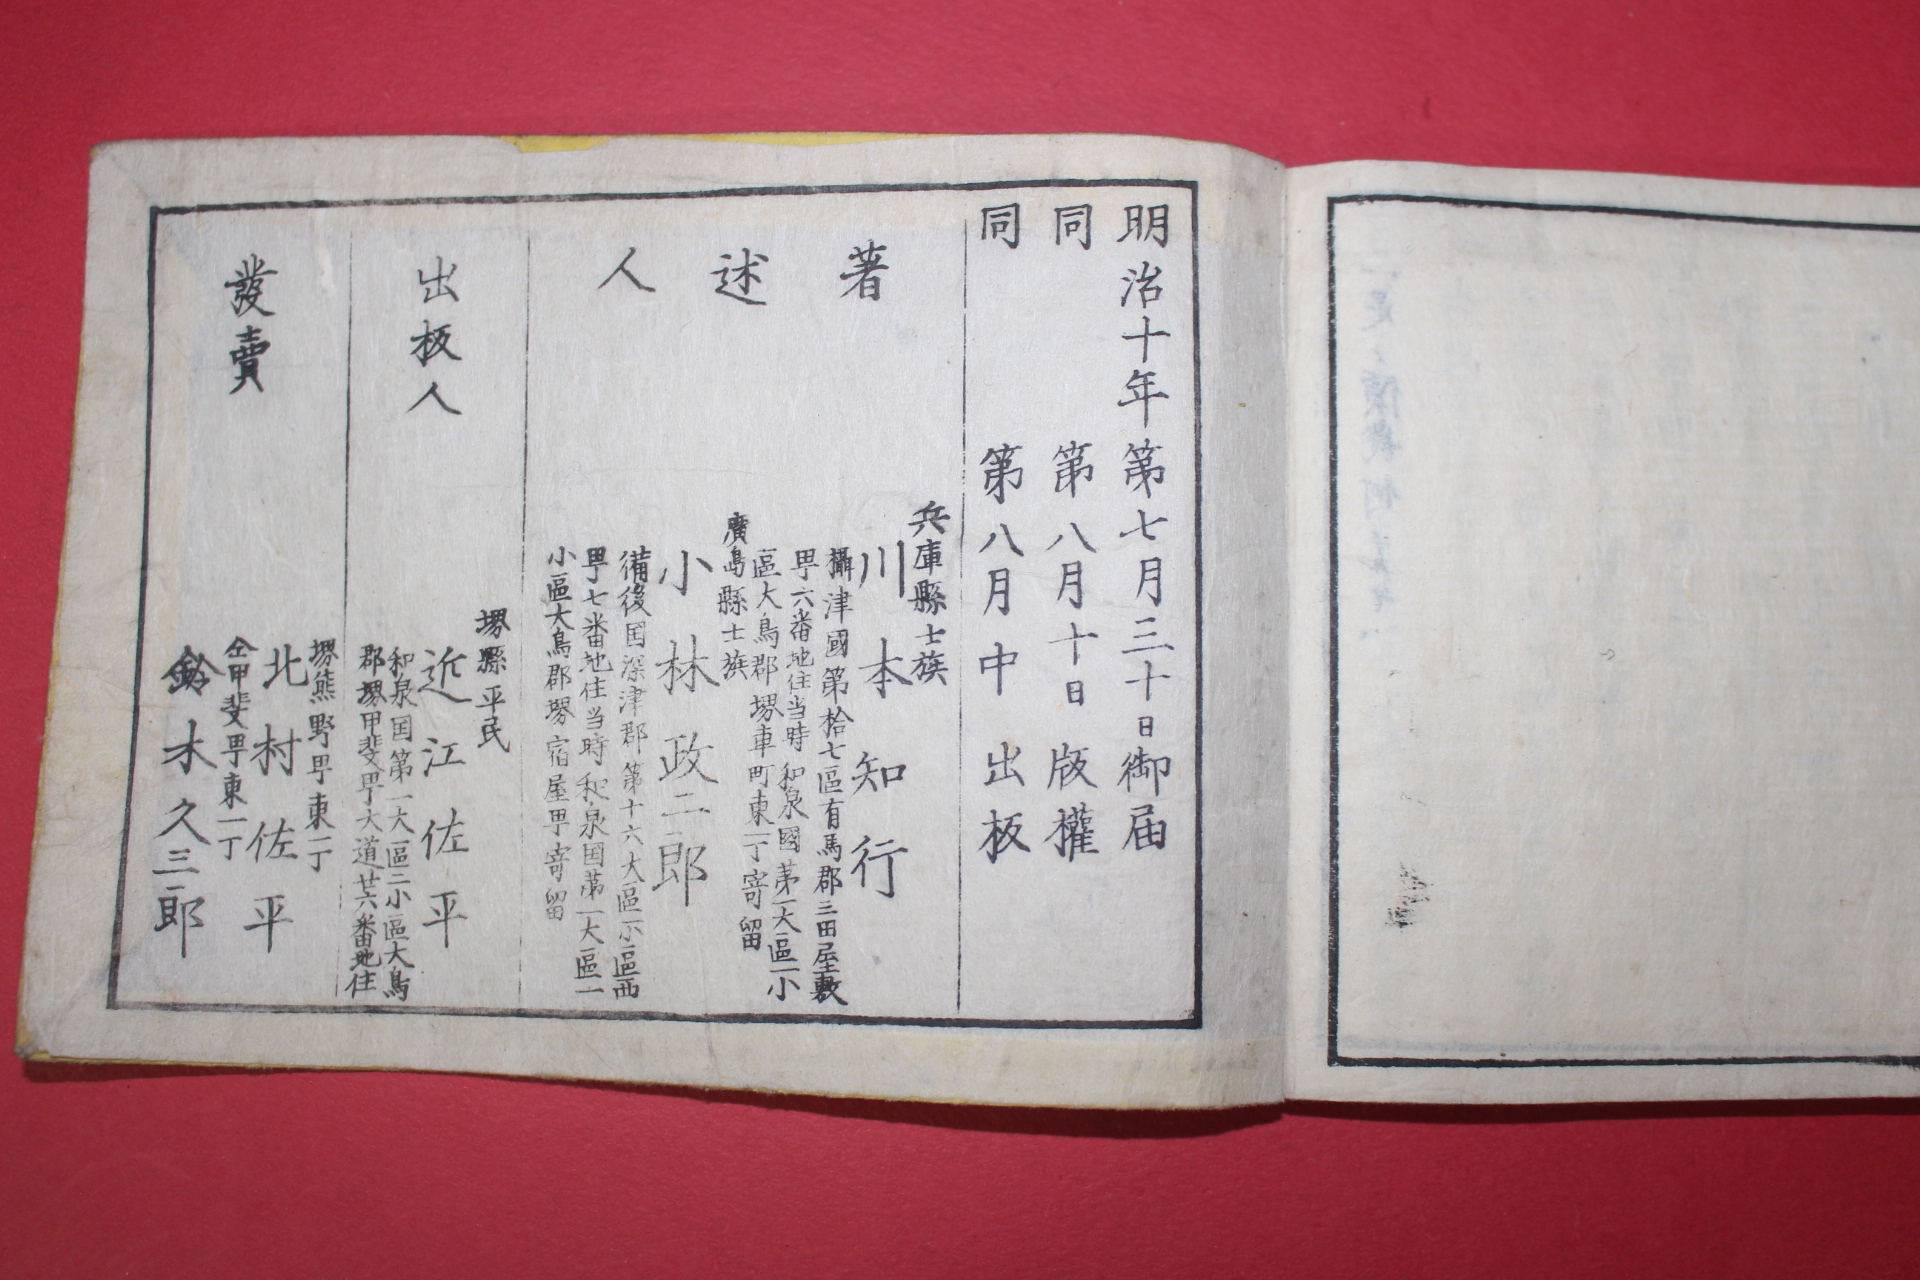 明治十年第七月三十日御届
同 第八月十日版權
同 第八月中出板
著述人
兵庫縣士族
川本知行
攝津國第拾七區有馬郡三田屋敷
甼六番地住当時和泉國第一大區一小
區大鳥郡堺車町東一丁寄留
廣島縣士族
小林政二郎
備後国深津郡第十六大區一小區西
甼七番地住当時和泉国第一大區一
小區大鳥郡堺宿屋甼寄留
出板人
堺縣平民
近江佐平
和泉国第一大區二小區大鳥
郡堺甲斐甼大道廿六番地住
發賣
堺熊野甼東一丁
北村佐平
仝甲斐甼東一丁
鈴木久三郎